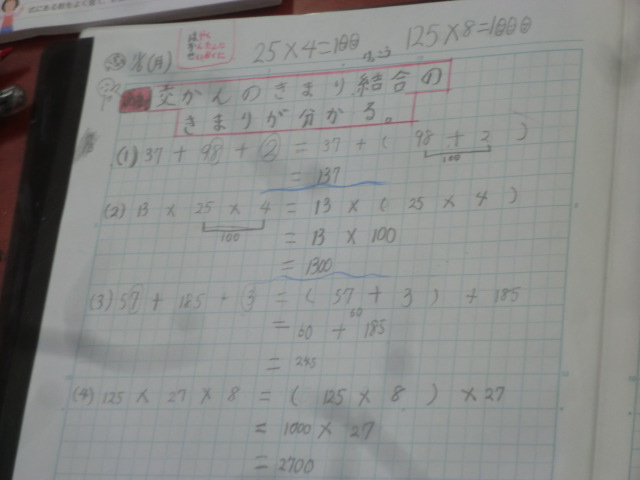 25×4=100
125×8=1000
交かんのきまり、結合の
きまりが分かる。
(1) 37 + 98 + 2 = 37 + ( 98 + 2 )
100
= 137
(2) 13 × 25 × 4 = 13 × ( 25 × 4 )
100
= 13 × 100
= 1300
(3) 57 + 185 + 3 = ( 57 + 3 ) + 185
60
= 60 + 185
= 245
(4) 125 × 27 × 8 = ( 125 × 8 ) × 27
= 1000 × 27
= 2700